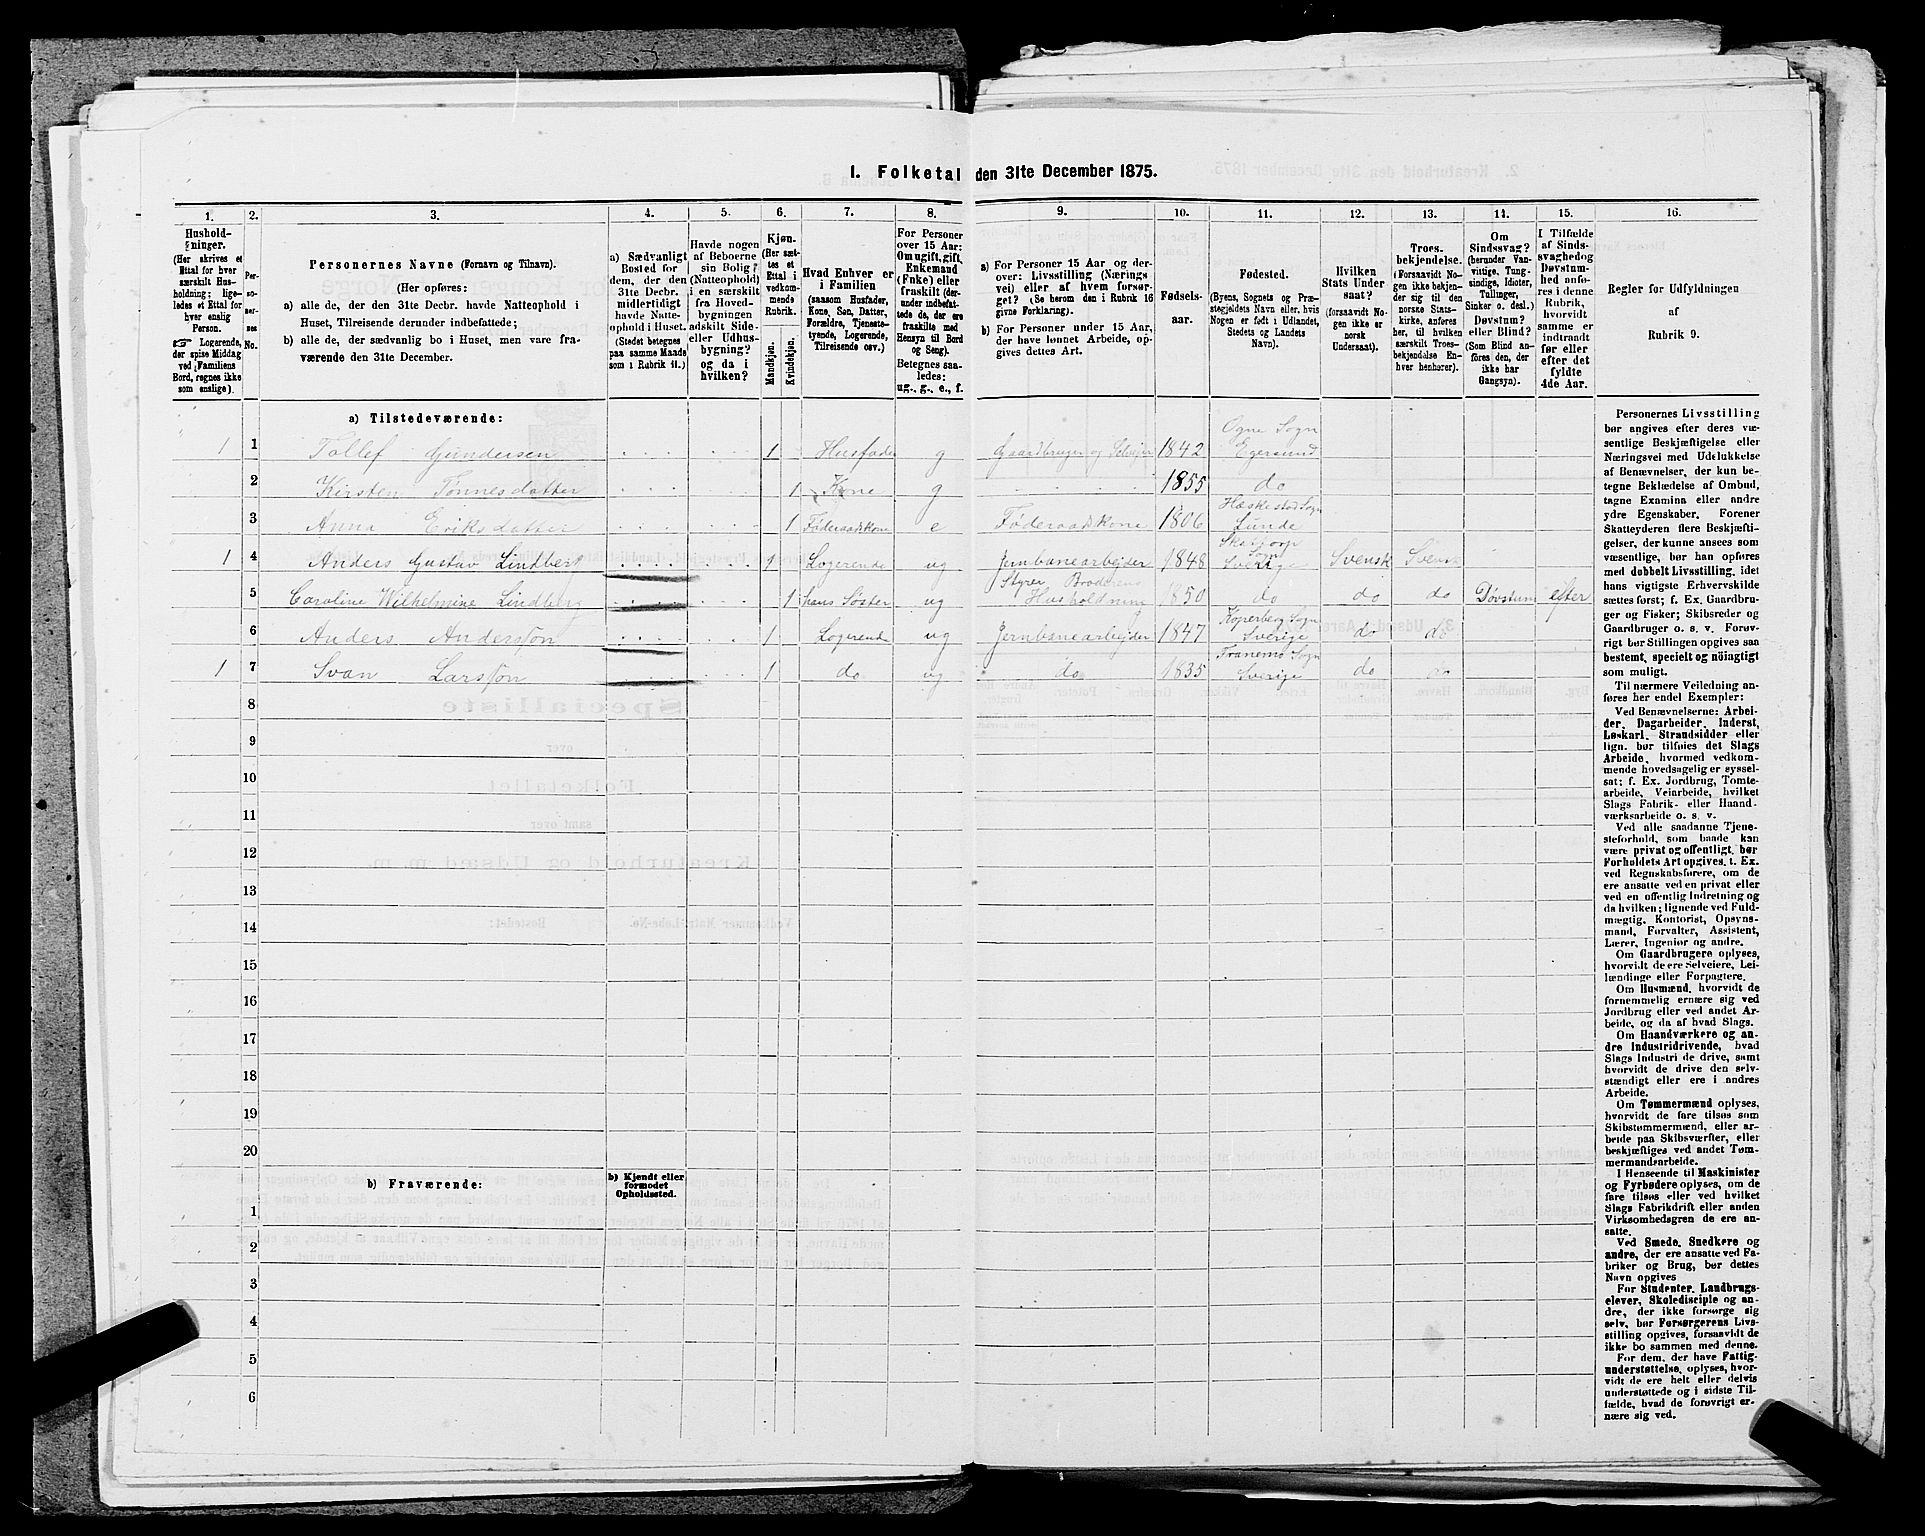 1. Folketal den 31te December 1875.
1.
2.
3.
4.
5.
6.
7.
8.
9.
10.
11.
12.
13.
14.
15.
16.
Hushold-
ninger.
(Her skrives et
Ettal for hver
særskilt Hus-
holdning; lige-
ledes et Ettal for
hver enslig
Person.
☞ Logerende,
der spise Middag
ved Familiens
Bord, regnes ikke
som enslige).
Per-
so-
ner-
nes
No.
Personernes Navne (Fornavn og Tilnavn).
(Her opføres:
a) alle de, der den 31te Decbr. havde Natteophold i
Huset, Tilreisende derunder indbefattede;
b) alle de, der sædvanlig bo i Huset, men vare fra-
værende den 31te December.
a) Sædvanligt
Bosted for
dem, der den
31te Decbr.
midlertidigt
havde Natte-
ophold i Huset.
(Stedet betegnes
paa samme Maade
som i Rubrik 11.)
Havde nogen
af Beboerne
sin Bolig
(Natteophold)
i en særskilt
fra Hoved-
bygningen
adskilt Side-
eller Udhus-
bygning?
og da i
hvilken?
Kjøn.
(Her sæt-
tes et
Ettal i
vedkom-
mende
Rubrik.
Mandkjøn.
Kvindekjøn.
Hvad Enhver er
i Familien
(saasom Husfader,
Kone, Søn, Datter,
Forældre, Tjeneste-
tyende, Logerende,
Tilreisende osv.)
For Personer
over 15 Aar:
Om ugift, gift,
Enkemand
(Enke) eller
fraskilt (der-
under indbefat-
tede de, der ere
fraskilte med
Hensyn til Bord
og Seng).
Betegnes saa-
ledes:
ug., g., e., f.
a) For Personer 15 Aar og der-
over: Livsstilling (Nærings
vei) eller af hvem forsør-
get? (Se herom den i Rubrik 16
givne Forklaring).
b) For Personer under 15 Aar,
der have lønnet Arbeide, op-
gives dettes Art.
Fødsels-
aar.
Fødested.
(Byens, Sognets og Præ-
stegjeldets Navn eller, hvis
Nogen er født i Udlandet,
Stedets og Landets
Navn).
Hvilken
Stats Under
saat?
(forsaavidt No-
gen ikke er
norsk
Undersaat).
Troes-
bekjendelse.
(Forsaavidt No-
gen ikke bekjen-
der sig til den
norske Stats-
kirke, anføres
her, til hvilken
særskilt Troes-
bekjendelse En-
hver henhører).
Om
Sindssvag?
(herunder Van-
vittige, Tung-
sindige, Idioter,
Tullinger,
Sinker o. desl.)
Døvstum?
eller Blind?
(Som Blind an-
føres den, der
ikke har
Gangsyn).
I Tilfælde
af Sinds-
svaghed og
Døvstum-
hed anfø-
res i denne
Rubrik,
hvorvidt
samme er
indtraadt
før eller
efter det
fyldte
4de Aar.
Regler for Udfyldningen
af
Rubrik 9.
a) Tilstedeværende:
1 1 Tollef Gundersen 1 Husfader g Gaardbruger og Selveier 1842 Ogne Sogn Egersund
2 Kirsten Tønnesdatter 1 Kone g 1855 do
3 Anna Eriksdatter 1 Føderaadskone e Føderaadskone 1806 Hæskestad Sogn Lunde
1 4 Anders Gustav Lindberg 1 Logerende ug Jernbanearbejder 1848 Sogn Sverige Svensk Svensk
5 Caroline Wilhelmine Lindberg 1 hans Søster ug Styrer Broderens Husholdning 1850 do do do Døvstum efter
6 Anders Andersson 1 Logerende ug Jernbanearbejder 1847 Koperberg Sogn Sverige do do
1 7 Svan Larsson 1 do ug do 1835 Tranemo Sogn Sverige do do
8
9
10
11
12
13
14
15
16
17
18
19
20
b) Fraværende:
b) Kjendt eller
formodet
Opholdssted.
1
2
3
4
5
6
Personernes Livsstilling
bør angives efter deres væ-
sentlige Beskjæftigelse eller
Næringsvei med Udelukkelse
af Benævnelser, der kun be-
tegne Beklædelse af Ombud,
tagne Examina eller andre
ydre Egenskaber. Forener
Skatteyderen flere Beskjæfti-
gelser, der kunne ansees som
væsentlige, bør han opføres
med dobbelt Livsstilling, idet
hans vigtigste Erhvervskilde
sættes først; f. Ex. Gaardbru-
ger og Fisker; Skibsreder og
Gaardbruger o. s. v. Forøv-
rigt bør Stillingen opgives saa
bestemt, specielt og nöiagtigt
som muligt.
Til nærmere Veiledning an-
føres her endel Exempler:
Ved Benævnelserne: Arbei-
der, Dagarbeider, Inderst,
Løskarl, Strandsidder eller
lign. bør tilføies det Slags
Arbeide, hvormed vedkom-
mende hovedsagelig er syssel-
sat; f. Ex. Jordbrug, Tomte-
arbeide, Veiarbeide, hvilket
Slags Fabrik- eller Haand-
værksarbeide o. s. v.
Ved alle saadanne Tjene-
steforhold, som baade kan
være privat og offentligt, bør
Forholdets Art opgives, f. Ex.
ved Regnskabsførere, om de
ere ansatte ved en privat eller
ved en offentlig Indretning og
da hvilken; lignende ved Fuld-
mægtig, Kontorist, Opsyns-
mand, Forvalter, Assistent,
Lærer, Ingeniør og andre.
Om Gaardbrugere oplyses,
hvorvidt de ere Selveiere, Lei-
lændinge eller Forpagtere.
Om Husmænd, hvorvidt de
fornemmelig ernære sig ved
Jordbrug eller ved andet Ar-
beide, og da af hvad Slags.
Om Haandværkere og an-
dre Industridrivende, hvad
Slags Industri de drive, samt
hvorvidt de drive den selv-
stændigt eller ere i andres
Arbeide.
Om Tømmermænd oplyses,
hvorvidt de fare tilsøs som
Skibstømmermænd, eller ar-
beide paa Skibsværfter, eller
beskjæftiges ved andet Tøm-
mermandsarbeide.
I Henseende til Maskinister
og Fyrbødere oplyses, om de
fare tilsøs eller ved hvilket
Slags Fabrikdrift eller anden
Virksomhedsgren de ere an-
satte.
Ved Smede, Snedkere og
andre, der ere ansatte ved Fa-
briker og Brug, bør dettes
Navn opgives
For Studenter, Landbrugs-
elever, Skoledisciple og an-
dre, der ikke forsørge sig
selv, bør Forsørgerens Livs-
stilling opgives, forsaavidt de
ikke bo sammen med denne.
For dem, der have Fattig-
understøttelse, oplyses, hvor-
vidt de ere helt eller delvis
understøttede og i sidste Til-
fælde, hvad de forøvrigt er-
nære sig ved.